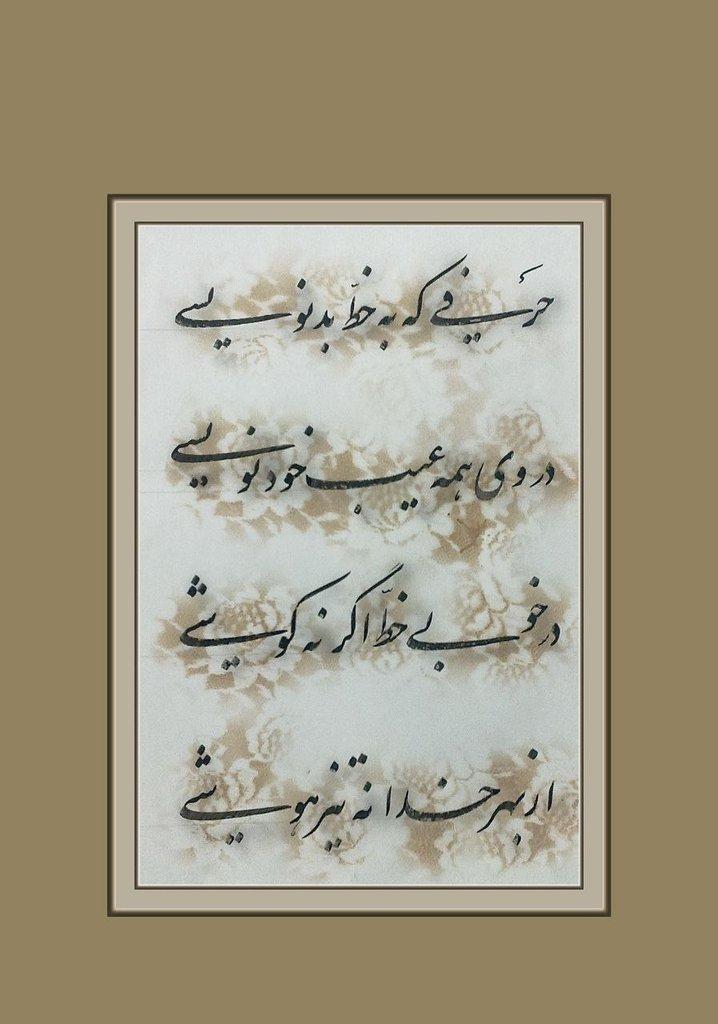 حرَفی که به خطّ بد نویسی
در وی همه عیب خود نویسی
در خوبی خطّ اگر نه کوشی
از بهر خدا نه تیزهوشی